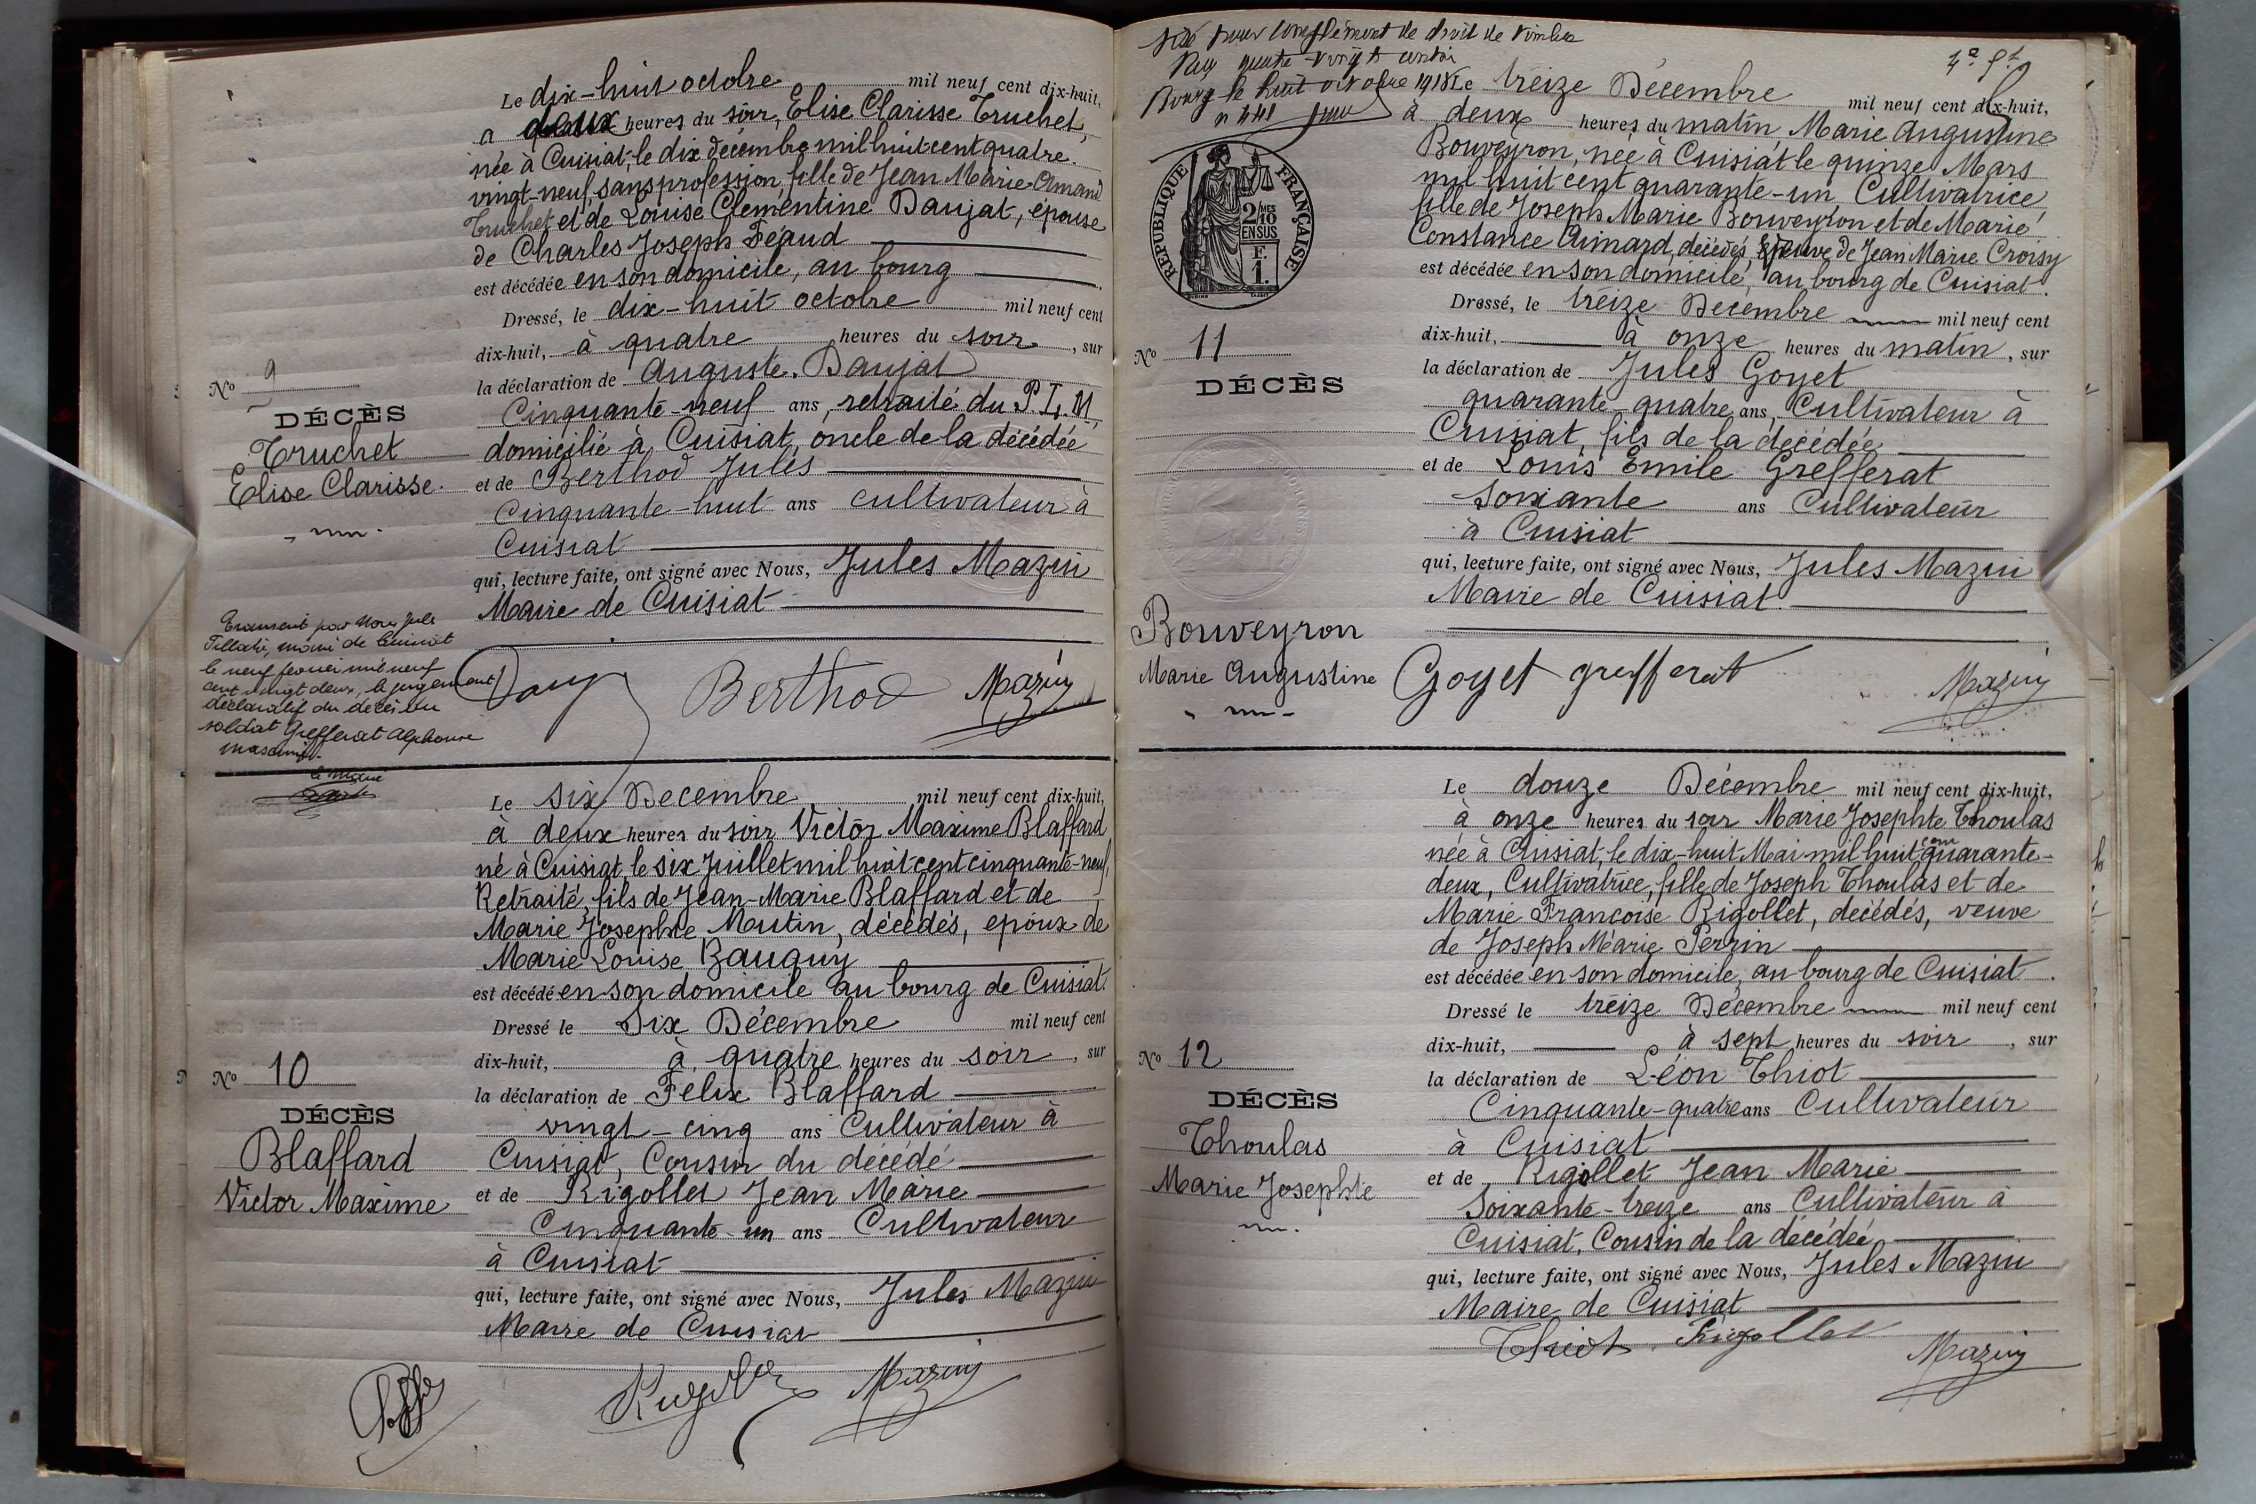 Le dix-huit octobre mil neuf cent dix-huit,
à deux heures du soir, Elise Clarisse Truchet,
née à Cuisiat, le dix décembre mil huit cent quatre-
vingt-neuf, sans profession, fille de Jean Marie Amand
Truchet et de Louise Clémentine Daujat, épouse
de Charles Joseph Féaud
est décédée en son domicile, au bourg
Dressé, le dix-huit octobre mil neuf cent
dix-huit, à quatre heures du soir, sur
la déclaration de Auguste Daujat
Cinquante-neuf ans, retraité du P.L.M,
domicilié à Cuisiat, oncle de la décédée
et de Berthod Jules
Cinquante-huit ans cultivateur à
Cuisiat
qui, lecture faite, ont signé avec Nous, Jules Mazuy
Maire de Cuisiat
No 9
DÉCÈS
Truchet
Elise Clarisse.
le neuf février mil neuf
cent vingt deux, le jugement
déclaratif du décès du
soldat Grefferat Alphonse
le maire
Berthod Mazuy
Le six Décembre mil neuf cent dix-huit,
à deux heures du soir Victor Maxime Blaffard
né à Cuisiat, le six Juillet mil huit cent cinquante-neuf,
Retraité, fils de Jean-Marie Blaffard et de
Marie Josephte Mutin, décédés, époux de
Marie Louise Bauguy
est décédé en son domicile au bourg de Cuisiat.
Dressé le Six Décembre mil neuf cent
dix-huit, à quatre heures du soir, sur
la déclaration de Félix Blaffard
vingt-cinq ans Cultivateur à
Cuisiat, Cousin du décédé
et de Rigollet Jean Marie
Cinquante-un ans Cultivateur
à Cuisiat
qui, lecture faite, ont signé avec Nous, Jules Mazuy
Maire de Cuisiat
No 10
DÉCÈS
Blaffard
Victor Maxime
Mazuy
Visé pour complément de droit de timbre
quatre-vingt
Bourg le huit octobre 1918
Le treize Décembre mil neuf cent dix-huit,
à deux heures du matin, Marie Augustine
Bouveyron, née à Cuisiat le quinze Mars
mil huit cent quarante-un, Cultivatrice,
fille de Joseph Marie Bouveyron et de Marie
Constance Aimard, décédés, veuve de Jean Marie Croisy
est décédée en son domicile, au bourg de Cuisiat.
Dressé, le treize Décembre mil neuf cent
dix-huit, à onze heures du matin, sur
la déclaration de Jules Goyet
quarante quatre ans, Cultivateur à
Cuisiat, fils de la décédée
et de Louis Emile Grefferat
Soixante ans Cultivateur
à Cuisiat
qui, lecture faite, ont signé avec Nous, Jules Mazuy
Maire de Cuisiat.
RÉPUBLIQUE FRANÇAISE
2/10 MES
EN SUS
F.
1.
No 11
DÉCÈS
Bouveyron
Marie Augustine
Goyet grefferat Mazuy
Le douze Décembre mil neuf cent dix-huit,
à onze heures du soir Marie Josephte Thoulas
née à Cuisiat, le dix-huit Mai mil huit cent quarante-
deux, Cultivatrice, fille de Joseph Thoulas et de
Marie Françoise Rigollet, décédés, veuve
de Joseph Marie Perrin
est décédée en son domicile, au bourg de Cuisiat.
Dressé le treize Décembre mil neuf cent
dix-huit, à sept heures du soir, sur
la déclaration de Léon Thiot
Cinquante-quatre ans Cultivateur
à Cuisiat
et de Rigollet Jean Marie
Soixante-treize ans Cultivateur à
Cuisiat, Cousin de la décédée
qui, lecture faite, ont signé avec Nous, Jules Mazuy
Maire de Cuisiat
No 12
DÉCÈS
Thoulas
Marie Josephte
Thiot Rigollet Mazuy